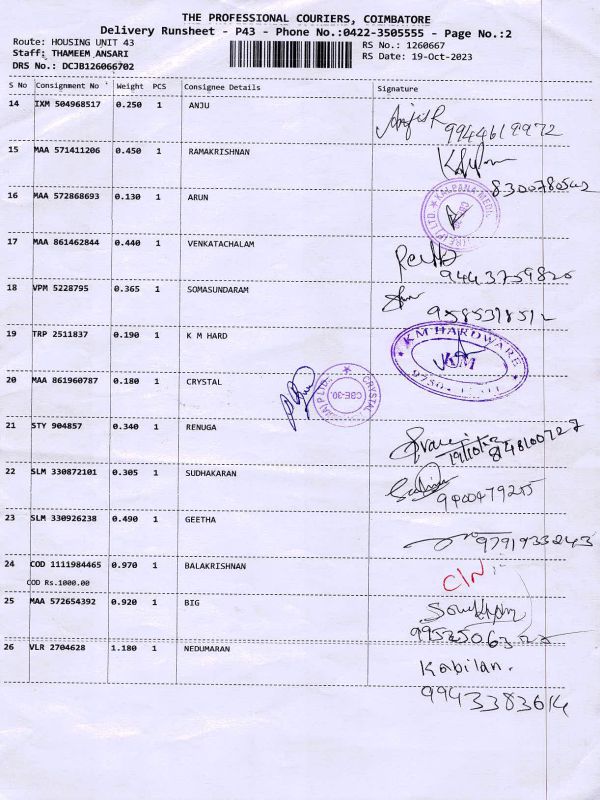 THE PROFESSIONAL COURIERS, COIMBATORE
Delivery Runsheet - P43 - Phone No.:0422-3505555 - Page No.:2
Route: HOUSING UNIT 43
RS No.: 1260667
Staff: THAMEEM_ANSARI
RS Date: 19-Oct-2023
DRS No.: DCJB126066702
S No Consignment No Weight PCS Consignee Details Signature
14 IXM 504968517 0.250 1 ANJU
9944619972
15 MAA 571411206 0.450 1 RAMAKRISHNAN
8300780542
16 MAA 572868693 0.130 1 ARUN
17 MAA 861462844 0.440 1 VENKATACHALAM
9443759826
18 VPM 5228795 0.365 1 SOMASUNDARAM
9585318512
19 TRP 2511837 0.190 1 K M HARD
KM HARDWARE
KM
20 MAA 861960787 0.180 1 CRYSTAL
CRYSTAL
CBE-30.
21 STY 904857 0.340 1 RENUGA
8148100727
22 SLM 330872101 0.305 1 SUDHAKARAN
9400479255
23 SLM 330926238 0.490 1 GEETHA
9791933243
24 COD 1111984465 0.970 1 BALAKRISHNAN
COD Rs.1000.00
C/N
25 MAA 572654392 0.920 1 BIG
26 VLR 2704628 1.180 1 NEDUMARAN
Kabilan.
9943383614